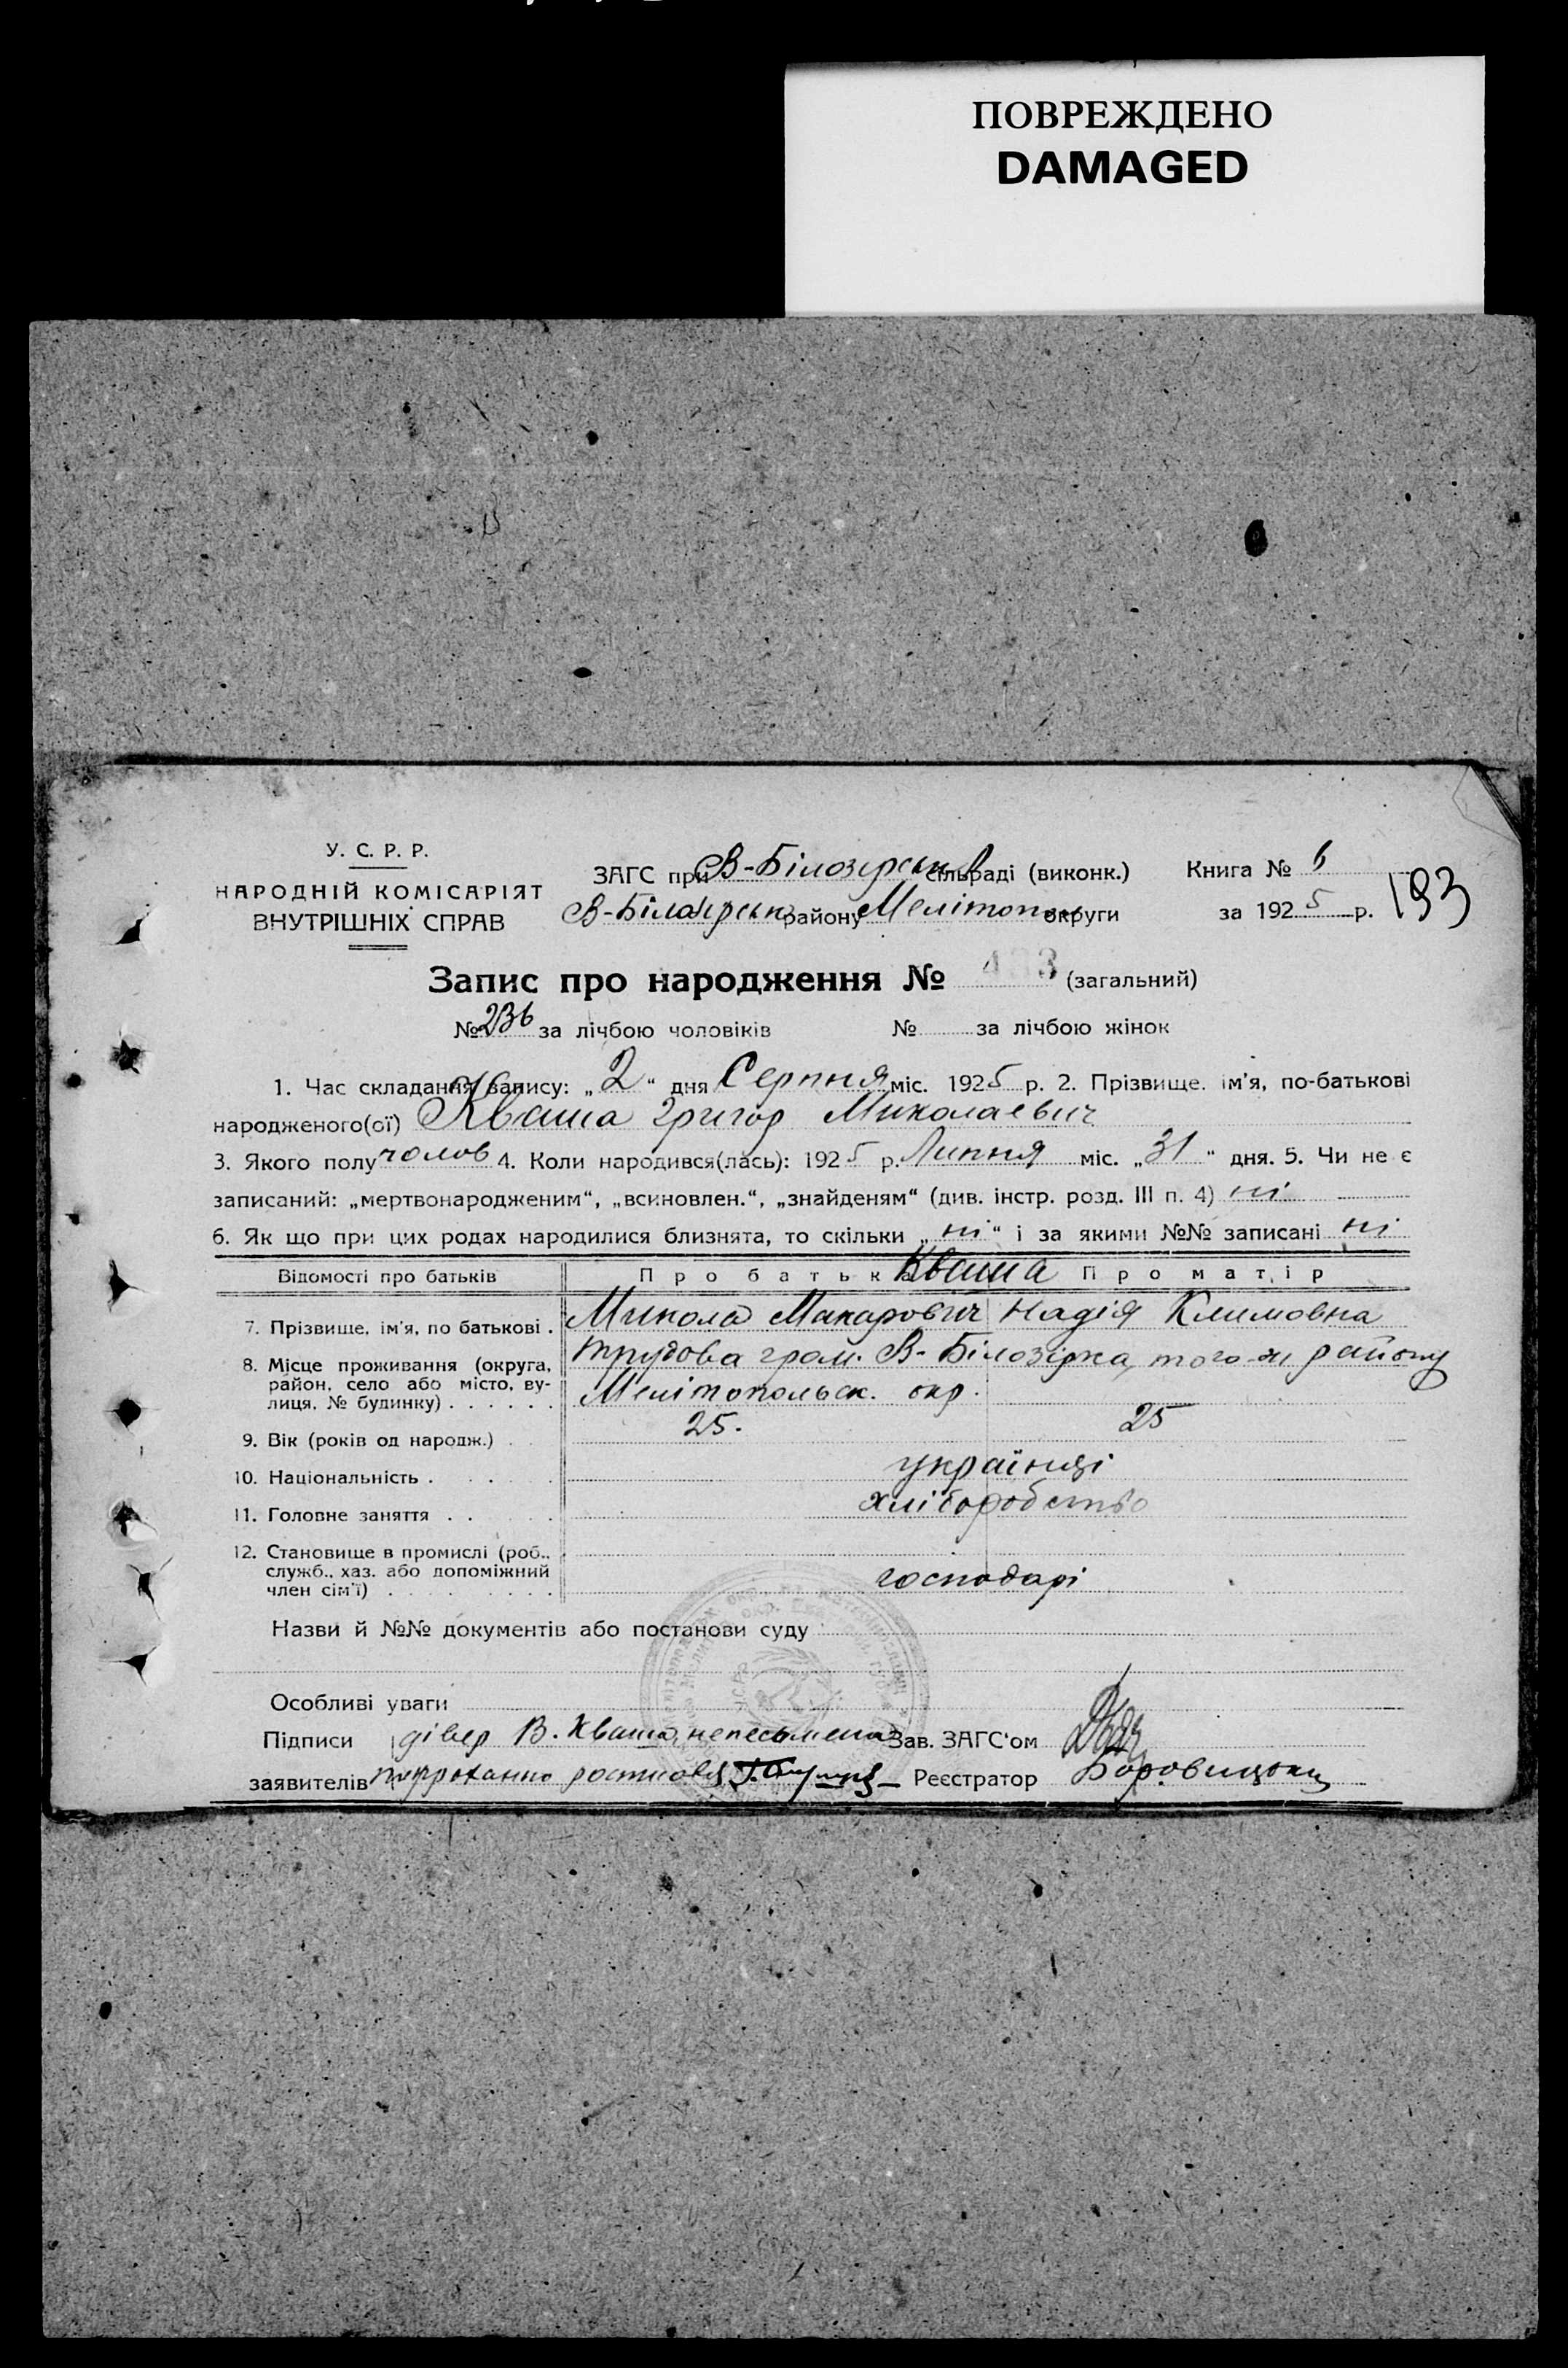 ПОВРЕЖДЕНО
DAMAGED
У. С. Р. Р.
НАРОДНІЙ КОМІСАРІЯТ
ВНУТРІШНІХ СПРАВ
ЗАГС при В-Білозірськ сільраді (виконк.)
В-Білозірськ району Мелітоп округи
Книга № 6
за 1925 р.
193
Запис про народження № 433 (загальний)
№ 236 за лічбою чоловіків № за лічбою жінок
1. Час складання запису: „2“ дня Серпня міс. 1925 р. 2. Прізвище, ім'я, по-батькові
народженого(ої) Кваша Григор Миколаевич
3. Якого полу чолов 4. Коли народився(лась): 1925 р. Липня міс. „31“ дня. 5. Чи не є
записаний: „мертвонародженим“, „всиновлен.“, „знайденям“ (див. інстр. розд. III п. 4) ні
6. Як що при цих родах народилися близнята, то скільки „ні“ і за якими №№ записані ні
Відомості про батьків Про батька Кваша Про матір
7. Прізвище, ім'я, по батькові . Микола Макарович Надія Климовна
8. Місце проживання (округа, район, село або місто, вулиця, № будинку) . . . . . . Трудова гром. В-Білозірка, того-ж району
Мелітопольськ. окр.
9. Вік (років од народж.) . . 25. 25
10. Національність . . . . українці
11. Головне заняття . . . . хліборобство
12. Становище в промислі (роб., служб., хаз. або допоміжний член сім'ї) . . . . . . . . господарі
Назви й №№ документів або постанови суду
Особливі уваги
Підписи дівер В. Кваша, неписьмена Зав. ЗАГС'ом
заявителів Реєстратор Боровицький